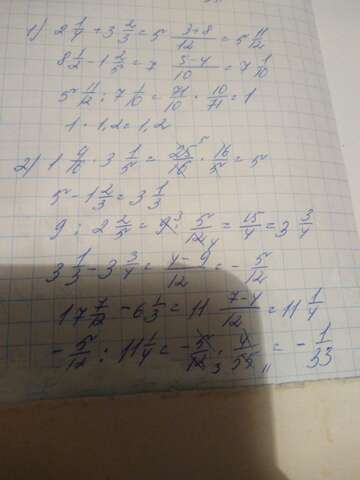 1) 2 1/4 + 3 2/3 = 5 3+8/12 = 5 11/12
8 1/2 - 1 2/5 = 7 5-4/10 = 7 1/10
5 11/12 : 7 1/10 = 71/10 · 10/71 = 1
1 · 1,2 = 1,2
2) 1 9/16 · 3 1/5 = 25/16 5 · 16/5 = 5
5 - 1 2/3 = 3 1/3
9 : 2 2/5 = 9 3 · 5/12 4 = 15/4 = 3 3/4
3 1/3 - 3 3/4 = 4-9/12 = - 5/12
17 7/12 - 6 1/3 = 11 7-4/12 = 11 1/4
- 5/12 : 11 1/4 = - 5/12 3 · 4/55 11 = - 1/33